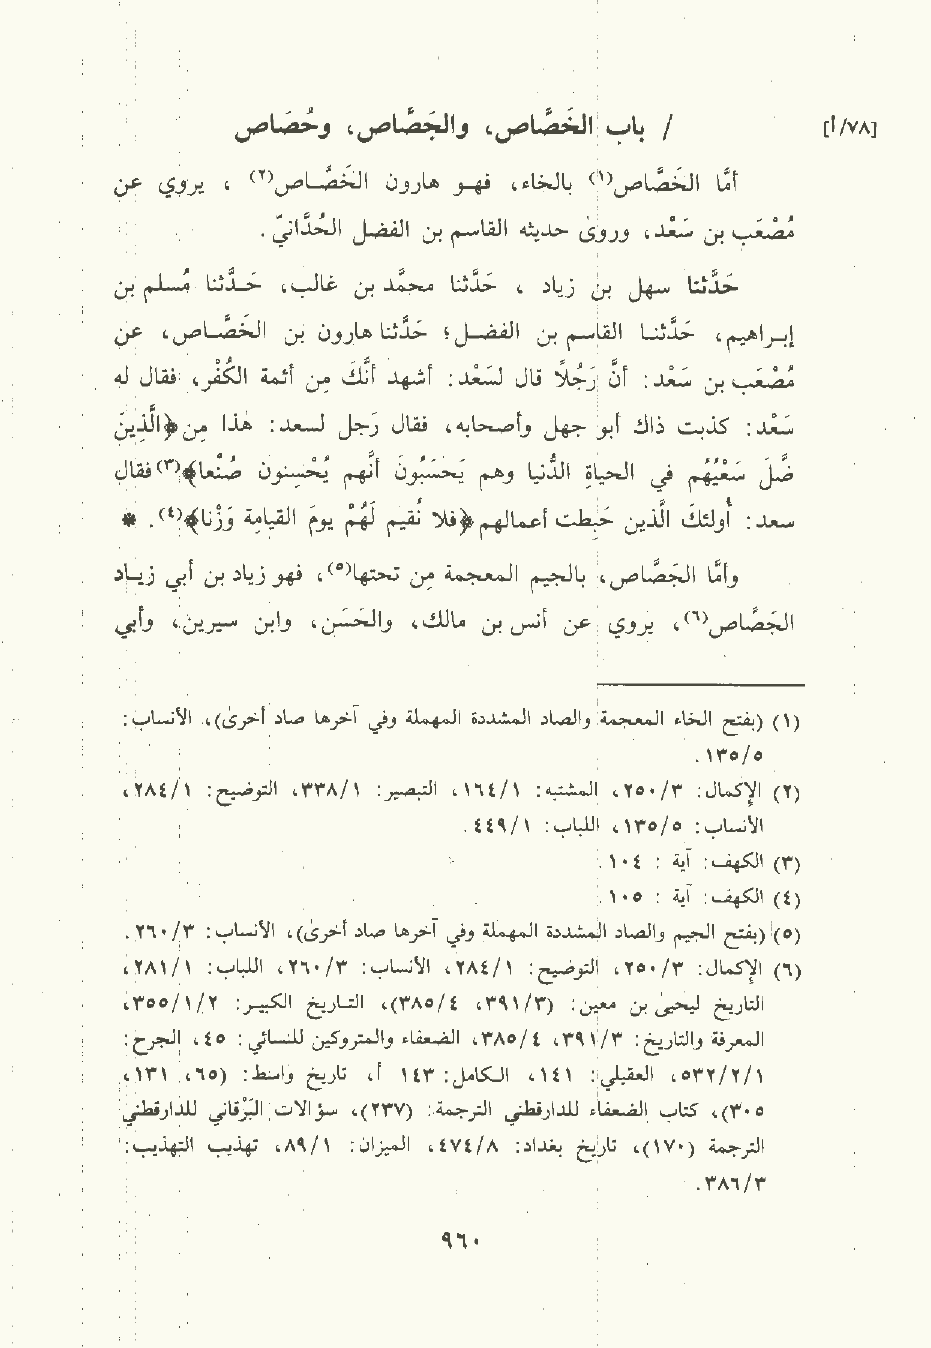 [٧٨/أ] / باب الخَصَّاص، والجَصَّاص، وحُصَاص
أمَّا الخَصَّاص(١) بالخاء، فهو هارون الخَصَّاص(٢)، يروي عن
مُصْعَب بن سَعْد، وروىٰ حديثه القاسم بن الفضل الحُدَّانيّ.
حَدَّثنا سهل بن زياد، حَدَّثنا محمَّد بن غالب، حَدَّثنا مُسلم بن
إبراهيم، حَدَّثنا القاسم بن الفضل؛ حَدَّثنا هارون بن الخَصَّاص، عن
مُصْعَب بن سَعْد: أنَّ رَجُلاً قال لسَعْد: أشهد أنَّكَ مِن أئمة الكُفْر، فقال له
سَعْد: كذبت ذاك أبو جهل وأصحابه، فقال رَجل لسعد: هذا مِن ﴿الَّذِينَ
ضَلَّ سَعْيُهُم في الحياةِ الدُّنيا وهم يَحسَبُونَ أنَّهم يُحْسِنون صُنْعا﴾(٣) فقال
سعد: أُولئكَ الَّذين حَبِطت أعمالهم ﴿فلا نُقيم لَهُمْ يومَ القيامة وَزْنا﴾(٤). *
وأمَّا الجَصَّاص، بالجيم المعجمة مِن تحتها(٥)، فهو زياد بن أبي زياد
الجَصَّاص(٦)، يروي عن أنس بن مالك، والحَسَن، وابن سيرين، وأبي
(١) (بفتح الخاء المعجمة والصاد المشددة المهملة وفي آخرها صاد أخرىٰ)، الأنساب:
٥/١٣٥.
(٢) الإكمال: ٣/٢٥٠، المشتبه: ١/١٦٤، التبصير: ١/٣٣٨، التوضيح: ١/٢٨٤،
الأنساب: ٥/١٣٥، اللباب: ١/٤٤٩.
(٣) الكهف: آية : ١٠٤.
(٤) الكهف: آية : ١٠٥.
(٥) (بفتح الجيم والصاد المشددة المهملة وفي آخرها صاد أخرىٰ)، الأنساب: ٣/٢٦٠.
(٦) الإكمال: ٣/٢٥٠، التوضيح: ١/٢٨٤، الأنساب: ٣/٢٦٠، اللباب: ١/٢٨١،
التاريخ ليحيىٰ بن معين: (٣/٣٩١، ٤/٣٨٥)، التاريخ الكبير: ٢/١/٣٥٥،
المعرفة والتاريخ: ٣/٣٩١، ٤/٣٨٥، الضعفاء والمتروكين للنسائي: ٤٥، الجرح:
١/٢/٥٣٢، العقيلي: ١٤١، الكامل: ١٤٣ أ، تاريخ واسط: (٦٥، ١٣١،
٣٠٥)، كتاب الضعفاء للدارقطني الترجمة: (٢٣٧)، سؤالات البَرْقاني للدارقطني
الترجمة (١٧٠)، تاريخ بغداد: ٨/٤٧٤، الميزان: ١/٨٩، تهذيب التهذيب:
٣/٣٨٦.
٩٦٠